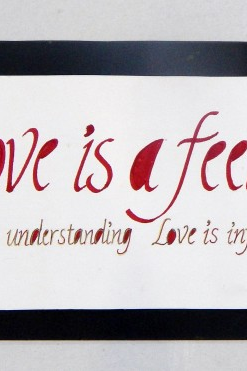 ove is a fee
understanding Love is in